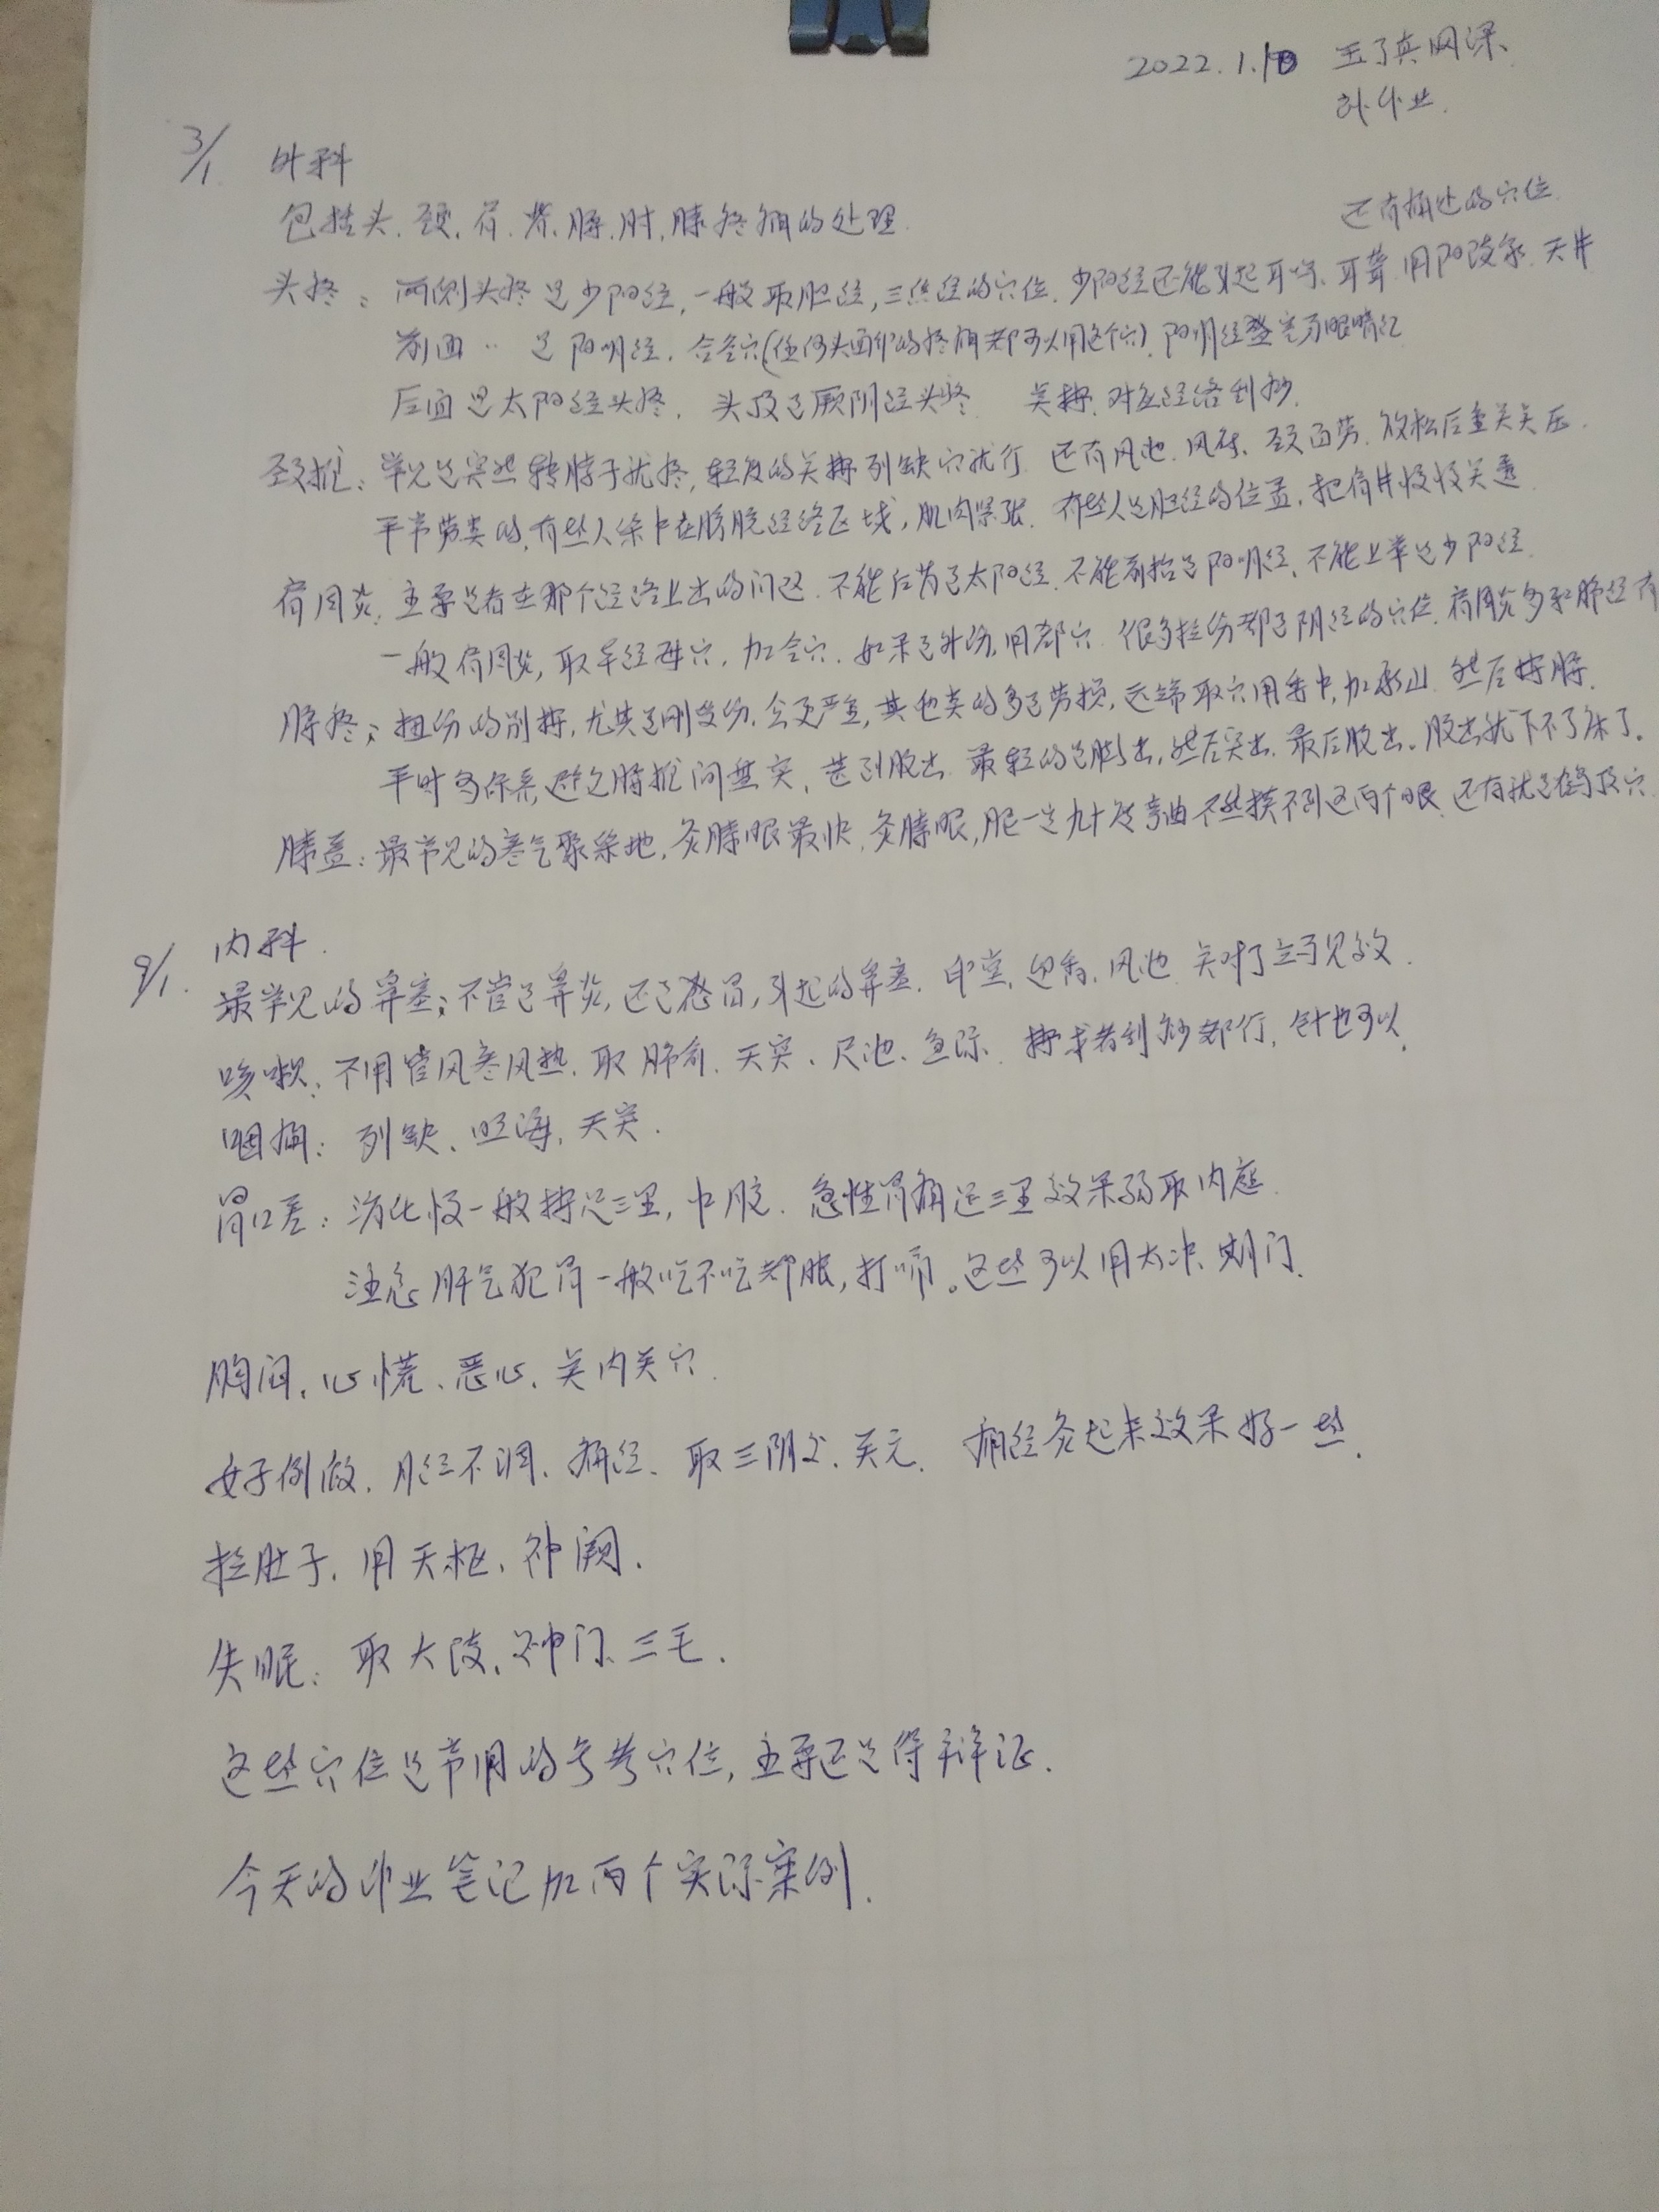 2022.1.10 玉了真网课、
补作业.
3/1 外科
包括头.颈.肩.背.腰.肘.膝疼痛的处理.
还有痛处的穴位
头疼: 两侧头疼是少阳经,一般取胆经,三焦经的穴位.少阳经还能引起耳鸣、耳聋.用阳陵泉.天井
前面 〃 是阳明经.合谷穴(任何头面部的疼痛都可以用这个穴).阳明经 眼睛红
后面是太阳经头疼. 头顶是厥阴经头疼. 关按.对应经络刮痧.
颈椎: 常见是突然转脖子就疼,轻度的关按列缺穴就行.还有风池.风府.颈百劳.放松后重关关压.
平常劳类的,有些人集中在膀胱经络区域,肌肉紧张.有些人是胆经的位置.把肩井慢慢关透
肩周炎.主要是看在那个经络上出的问题.不能后背是太阳经.不能前抬是阳明经、不能上举是少阳经
一般肩周炎,取本经母穴,加合穴.如果是外伤,用郄穴.很多拉伤都是阴经的穴位.肩周炎多和肺经有
腰疼: 扭伤的别按,尤其是刚发伤,会更严重,其他类的多是劳损,远端取穴用委中,加承山.然后按腰.
平时多保养,避免腰椎间盘突,甚到脱出.最轻的是膨出,然后突出.最后脱出.脱出就下不了床了.
膝盖: 最常见的寒气聚集地,灸膝眼最快.灸膝眼,腿一定九十度弯曲不然摸不到这两个眼.还有就是鹤顶穴
9/1. 内科.
最常见的鼻塞;不管是鼻炎,还是感冒,引起的鼻塞.印堂,迎香.风池.关对了立马见效.
咳嗽:不用管风寒风热.取肺俞.天突、尺池、鱼际.按或者刮痧都行,针也可以.
咽痛: 列缺、照海,天突.
胃口差: 消化慢一般按足三里,中脘.急性胃痛足三里效果弱取内庭.
注意肝气犯胃一般吃不吃都胀,打嗝。这些可以用太冲.期门.
胸闷、心慌、恶心、关内关穴.
女子例假.月经不调、痛经、取三阴交.关元. 痛经灸起来效果好一些.
拉肚子.用天枢、神阙.
失眠: 取大陵、神门、三毛.
这些穴位是常用的参考穴位,主要还是得辩证.
今天的作业笔记加两个实际案例.